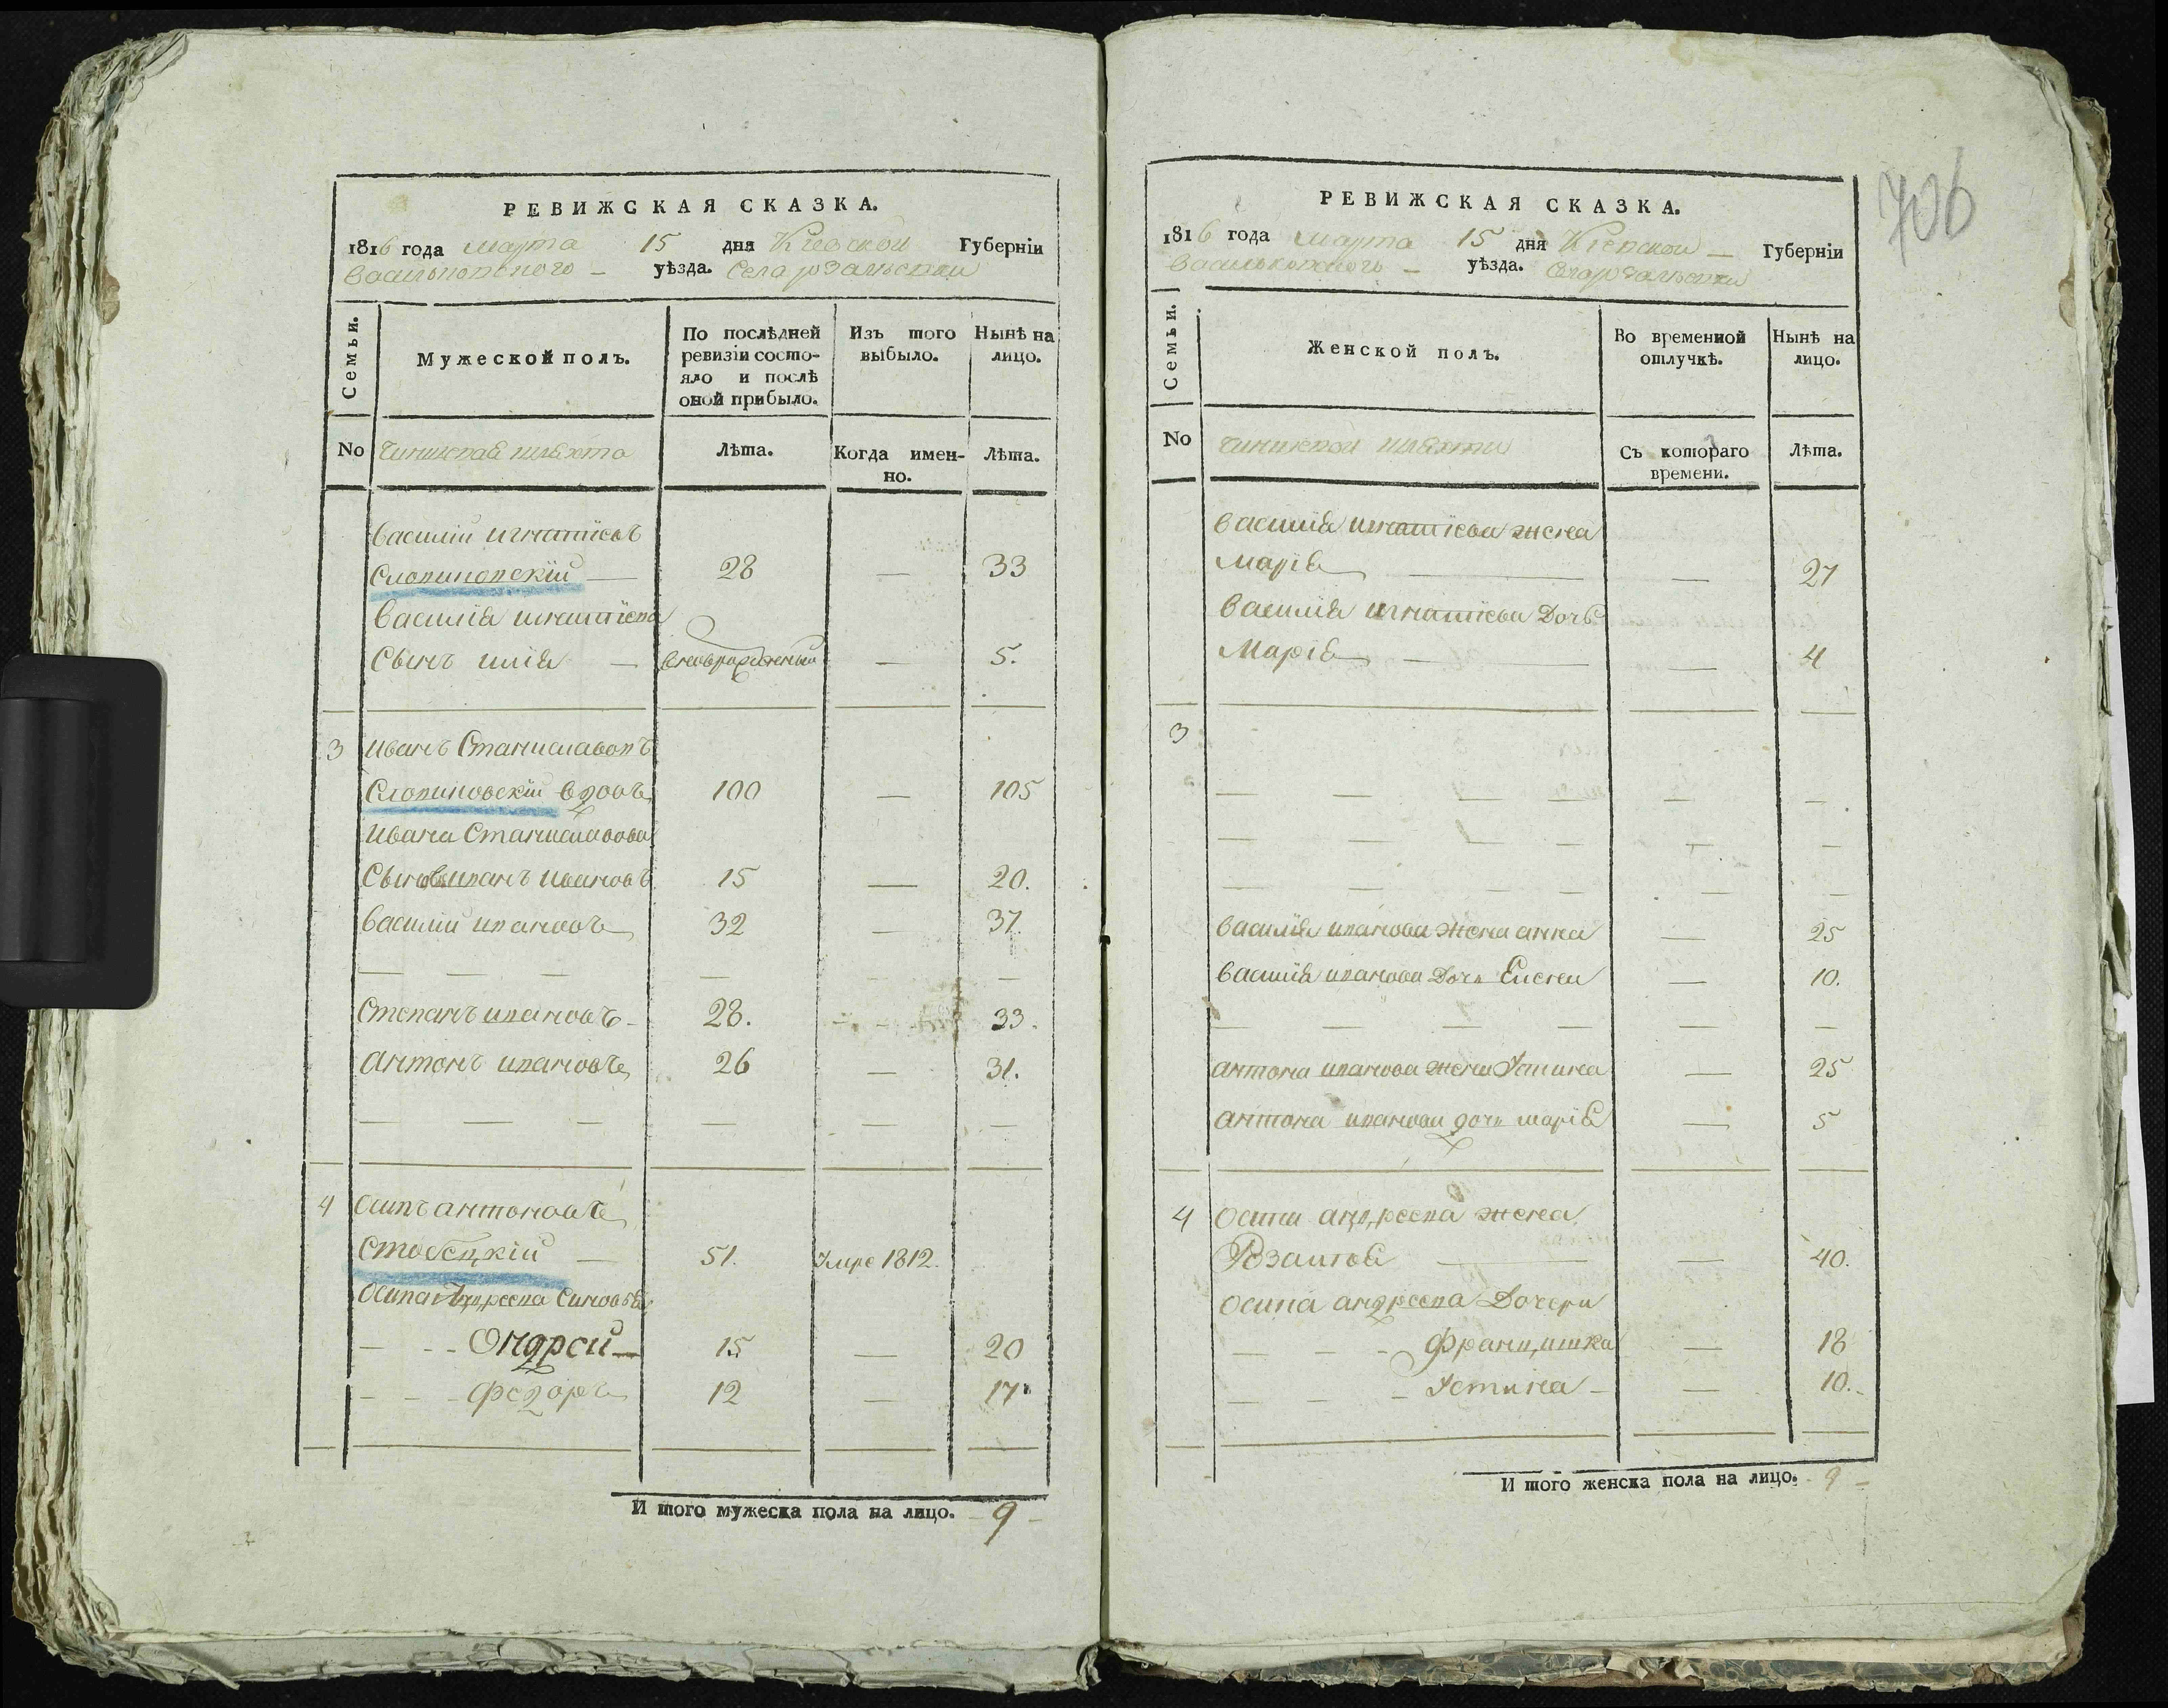 РЕВИЖСКАЯ СКАЗКА.
1816 года марта 15 дня Кіевской Губерніи
Васильковского уѣзда. Села
Семьи.
Мужеской полъ.
По послѣдней ревизіи состояло и послѣ оной прибыло.
Изъ того выбыло.
Нынѣ на лицо.
No
Чиншевая шляхта
Лѣта.
Когда именно.
Лѣта.
Василій Игнатіевъ
Слопиновскій — 28 — 33
Василія Игнатіева
Сынъ Илія — вновьрожденный — 5.
3 Иванъ Станиславовъ
Слопиновскій вдовъ 100 — 105
Ивана Станиславова
Сыновья Иванъ Ивановъ 15 — 20.
Василій Ивановъ 32 — 37.
— — — — — —
Степанъ Ивановъ 28. — — 33.
Антонъ Ивановъ 26 — 31.
— — — — — —
4 Осипъ Антоновъ
Стовецкій — 51. Умре 1812.
Осипа Андреева Сыновья
— — Ондрей — 15 — 20
— — Федоръ 12 — 17
И того мужеска пола на лицо. 9
706
РЕВИЖСКАЯ СКАЗКА.
1816 года марта 15 дня Кіевской Губерніи
Васильковского уѣзда. Села
Семьи.
Женской полъ.
Во временной отлучкѣ.
Нынѣ на лицо.
No
Чиншевой шляхты
Съ котораго времени.
Лѣта.
Василія Игнатіева жена
Марія — — 27
Василія Игнатіева Дочь
Марія — — — 4
3
— — — — — —
— — — — — —
— — — — — —
Василія Иванова жена анна — 25
Василія Иванова Дочь Елена — 10.
— — — — — —
Антона Иванова жена Устина — 25
Антона Иванова дочь марія — 5
4 Осипа андреева жена
Розалія — — 40.
Осипа андреева Дочери
— — — Францишка — 18
— — — Устина — — 10.
И того женска пола на лицо. 9